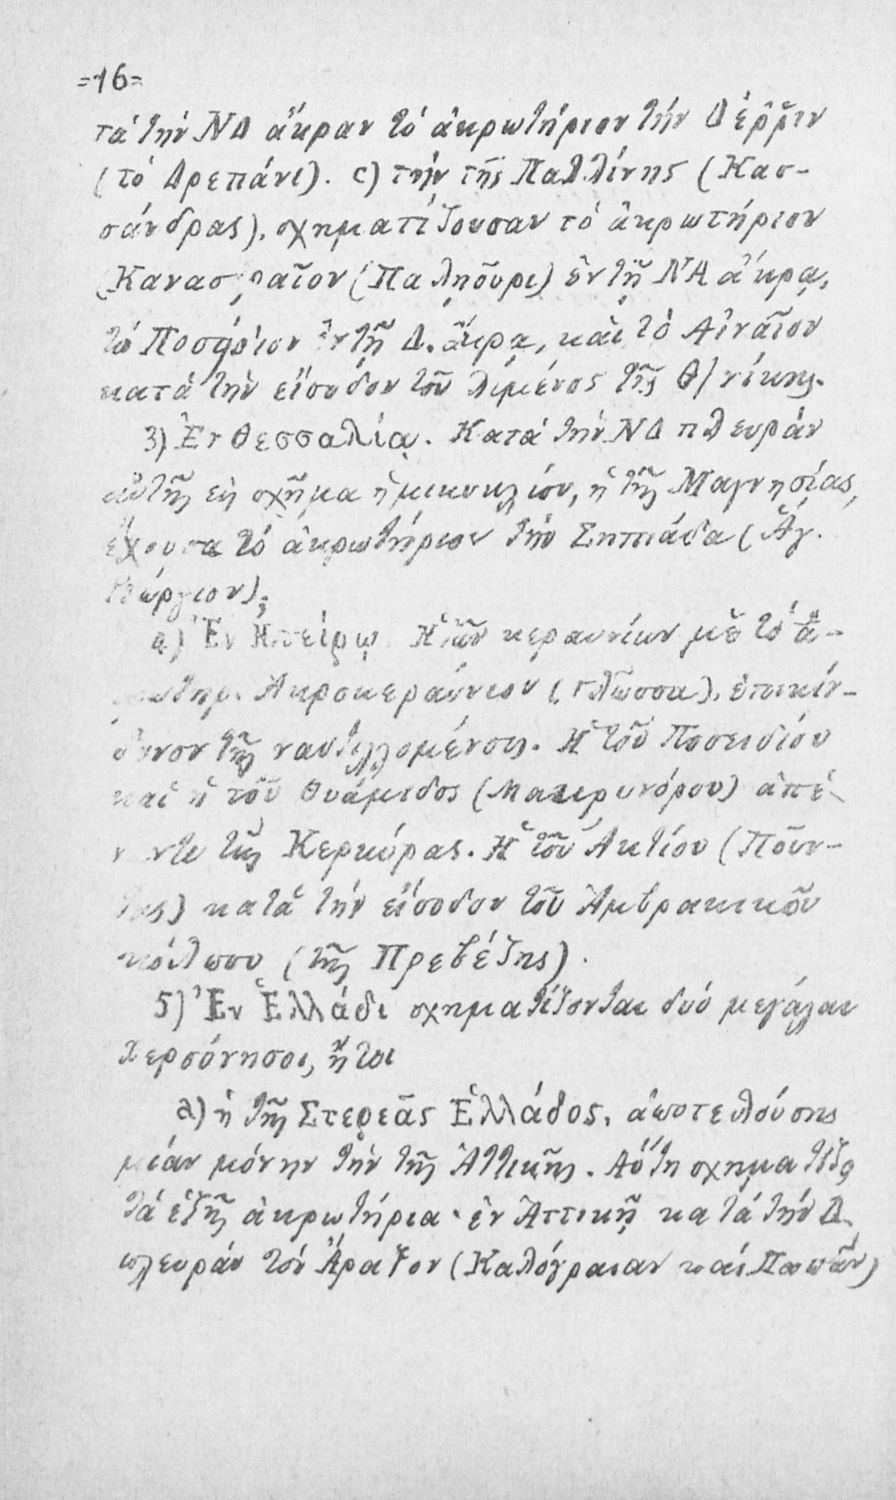 =16=
τά τήν ΝΔ ἄκραν τό ἀκρωτήριον τήν Δέῤῥιν
(τό Δρεπάνι). c) τήν τῆς Παλλήνης (Κασ-
σάνδρας), σχηματίζουσαν τό ἀκρωτήριον
(Καναστραῖον (Παληοῦρι) ἐν τῇ ΝΑ ἄκρᾳ,
τό Ποσείδιον ἐν τῇ Δ. ἄκρᾳ, καί τό Αἰναῖον
κατά τήν εἴσοδον τοῦ λιμένος τῆς Θ/νίκης.
3) Ἐν Θεσσαλίᾳ. Κατά τήν ΝΔ πλευράν
αὐτῆς ἐν σχῆμα ἡμικυκλίου, ἡ τῆς Μαγνησίας,
ἔχουσα τό ἀκρωτήριον τήν Σηπιάδα (Ἅγ.
Γεώργιον);
4) Ἐν Ἠπείρῳ. Ἡ τῶν κεραυνίων μέ τό ἀ-
κρωτηρ. Ἀκροκεραύνιον (Γλῶσσα), ἐπικίν-
δυνον τοῖς ναυτιλλομένοις. Ἡ τοῦ Ποσειδίου
καί ἡ τοῦ Θυάμιδος (Μακρυνόρου) ἀπέ-
ναντι τῆς Κερκύρας. Ἡ τοῦ Ἀκτίου (Ποῦν-
τας) κατά τήν εἴσοδον τοῦ Ἀμβρακικοῦ
κόλπου (τῆς Πρεβέζης).
5) Ἐν Ἑλλάδι σχηματίζονται δυό μεγάλαι
Χερσόνησοι, ἤτοι
a) ἡ τῆς Στερεᾶς Ἑλλάδος, ἀποτελούσης
μίαν μόνην τήν τῆς Ἀττικῆς. Αὕτη σχηματίζε
τά ἑξῆς ἀκρωτήρια· ἐν Ἀττικῇ κατά τήν Δ.
πλευράν τόν Ἄραξον (Καλόγραιαν καί Παπᾶν)